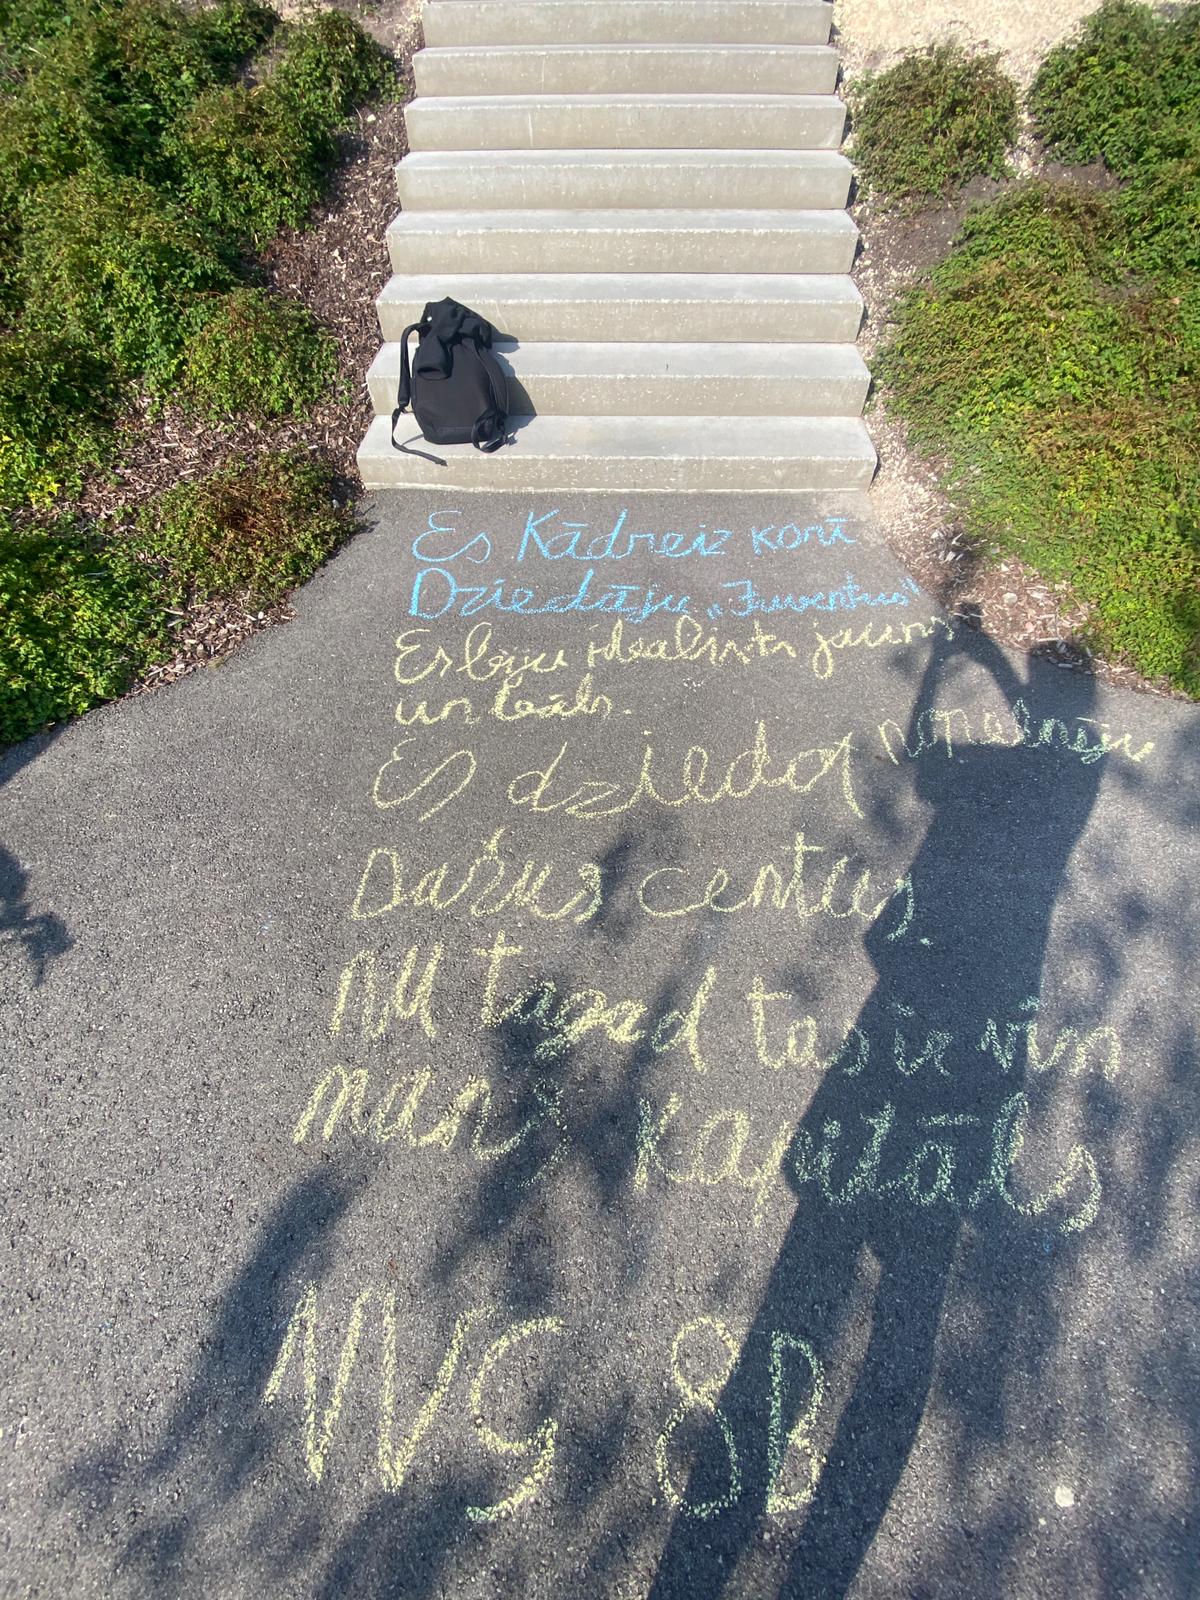 Es Kādreiz korī
Dziedāju „Juventus"
Es biju ideālists jauns
un tāls.
Es dziedot nopelnīju
Dažus centus.
nu tagad tas ir viss
mans kapitāls
NVG 8B